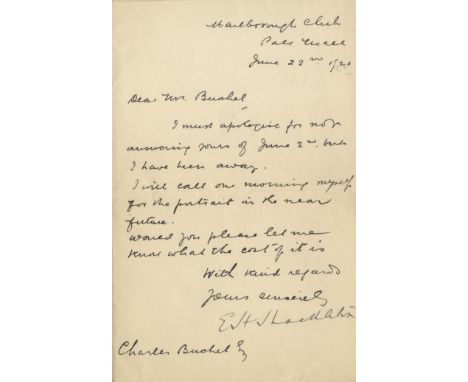 Marlborough Club
Pall Mall
June 22nd 1920
Dear Mr. Buchel,
I must apologise for not
answering yours of June 2nd. but
I have been away.
I will call one morning myself
for the portrait in the near
future.
Would you please let me
know what the cost of it is
With kind regards
Yours sincerely
E H Shackleton
Charles Buchel Esq